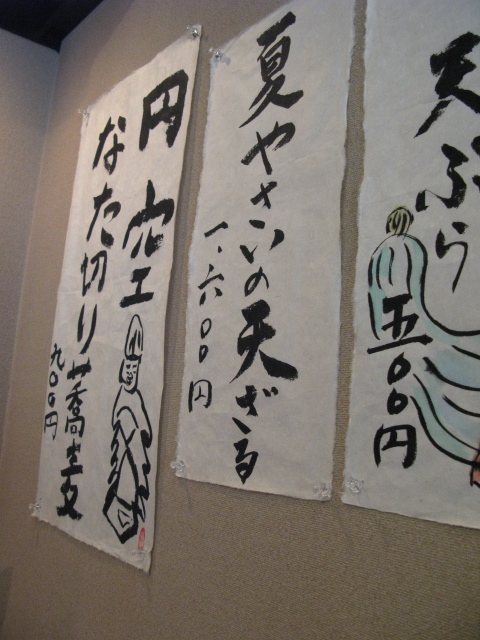 天ぷら
五〇〇円
夏やさいの天ざる
一、六〇〇円
円空
なた切り蕎麦
九〇〇円